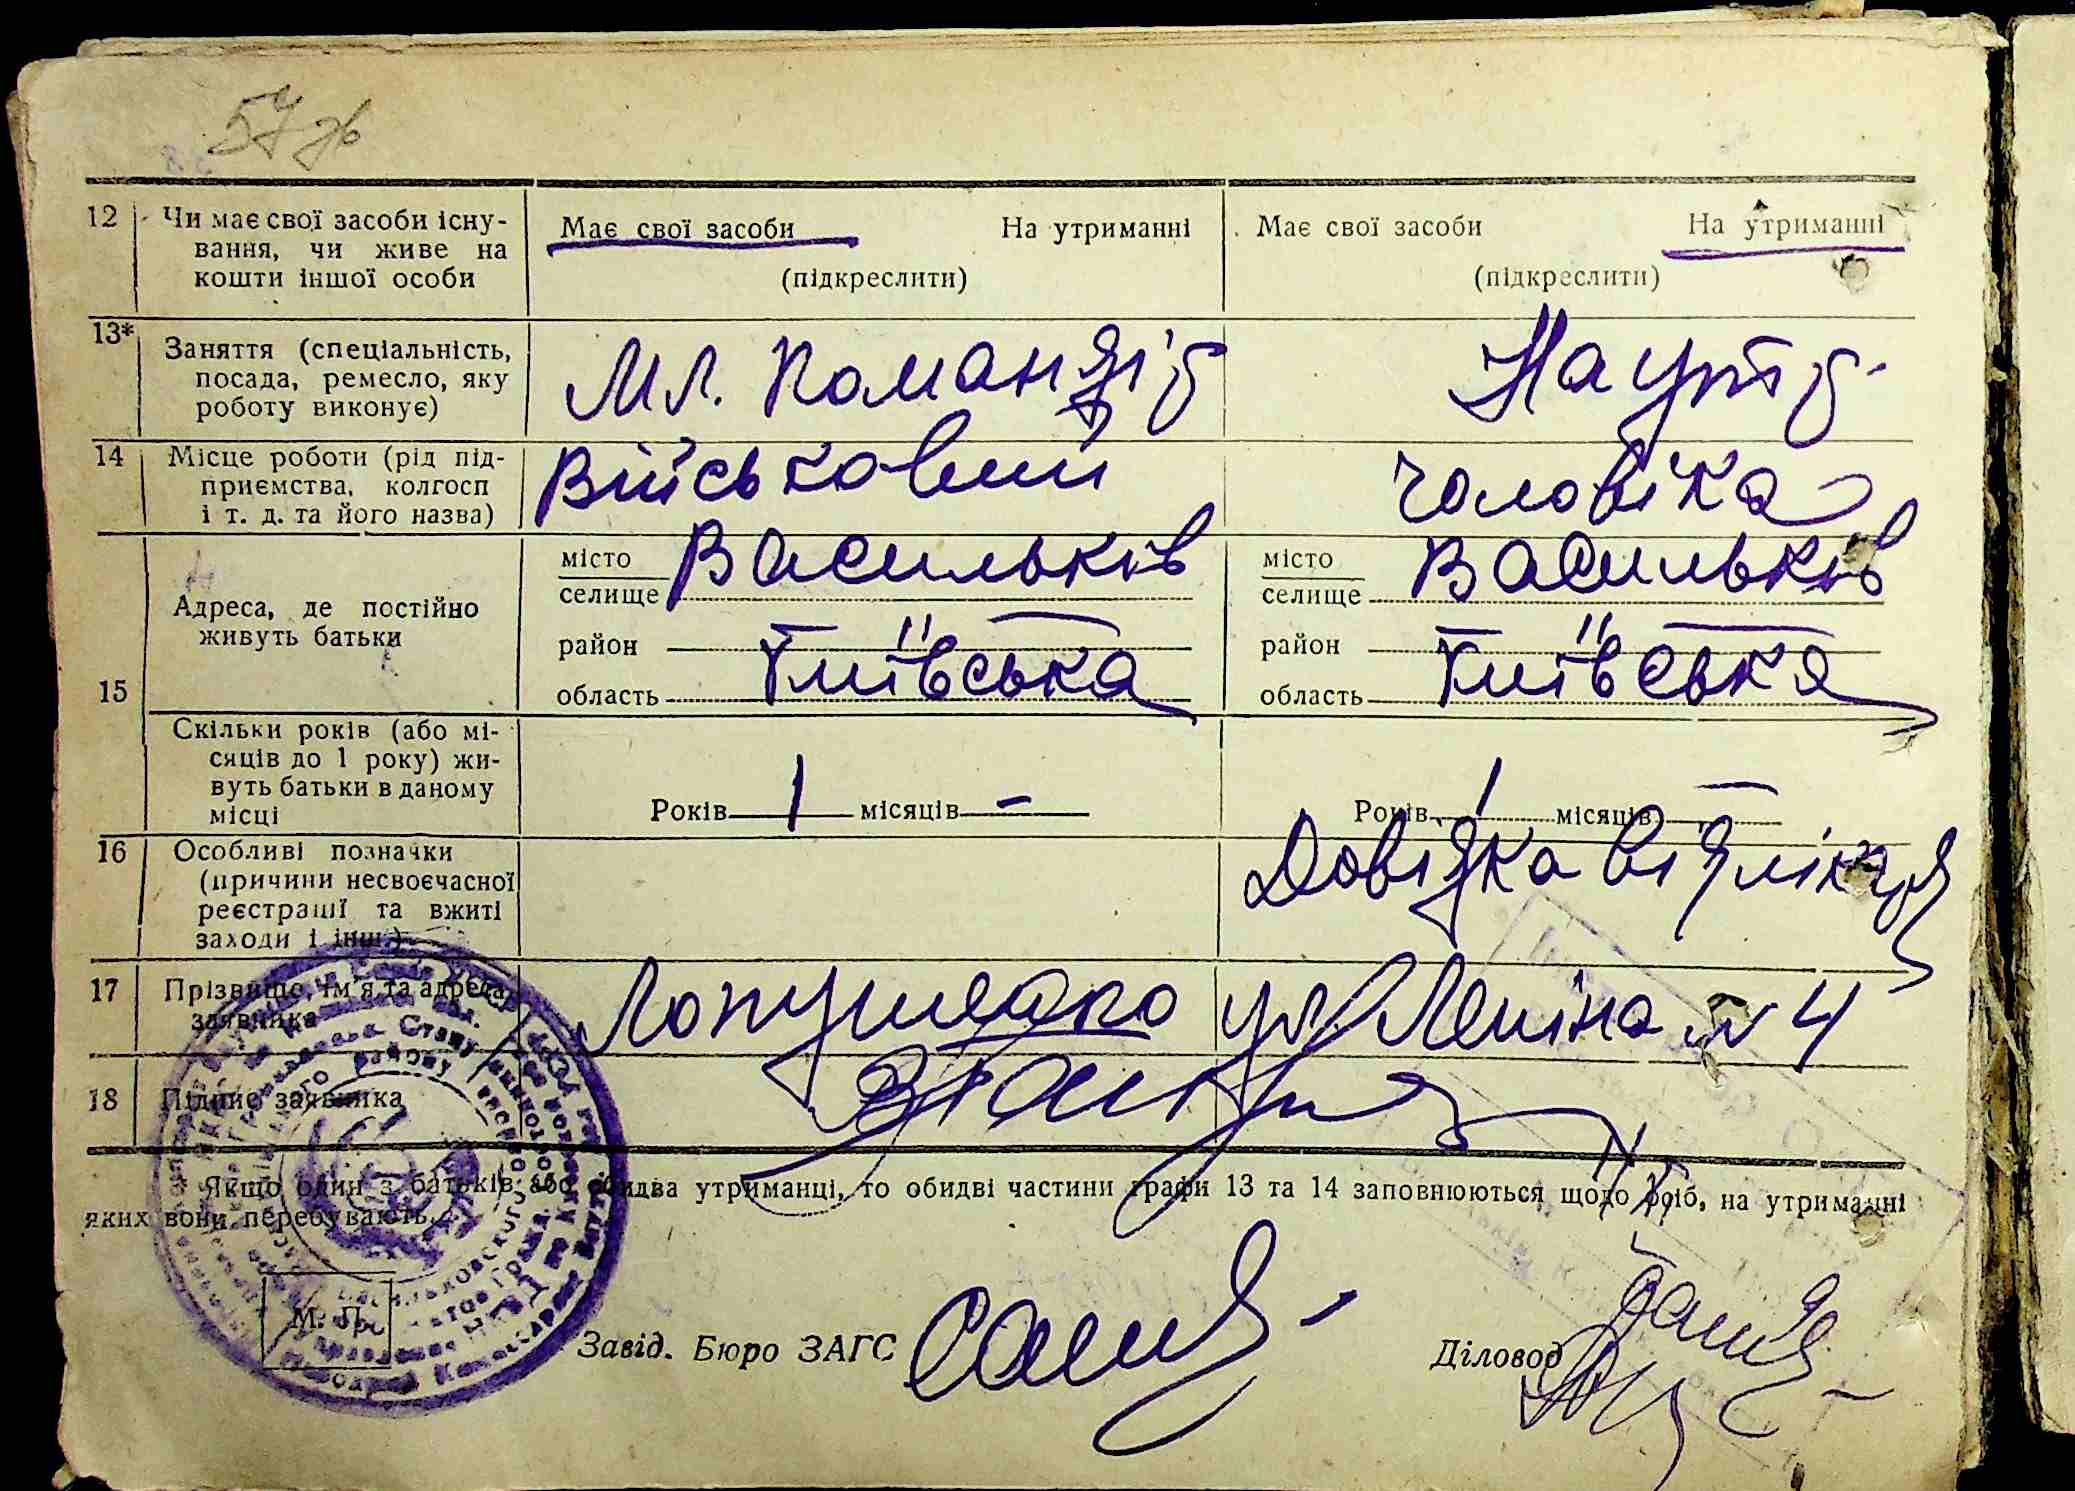 57 зв
12 Чи має свої засоби існу- Має свої засоби На утриманні Має свої засоби На утриманні
вання, чи живе на
кошти іншої особи (підкреслити) (підкреслити)
13* Заняття (спеціальність, Мл. Командір На утр.
посада, ремесло, яку
роботу виконує)
14 Місце роботи (рід під- Військовий чоловіка
приємства, колгосп
і т. д. та його назва)
місто Васильків місто Васильків
селище селище
Адреса, де постійно
живуть батьки район — " — район — " —
15 область Київська область Київська
Скільки років (або мі-
сяців до 1 року) жи-
вуть батьки в даному
місці Років 1 місяців — Років 1 місяців —
16 Особливі позначки Довідка від лікаря
(причини несвоєчасної
реєстрації та вжиті
заходи і інш.)
17 Прізвище, ім'я та адреса ул. Леніна № 4
заявника
18 Підпис заявника
Якщо один з батьків або обидва утриманці, то обидві частини графи 13 та 14 заповнюються щодо осіб, на утриманні
яких вони перебувають.
М. П.
Завід. Бюро ЗАГС Діловод